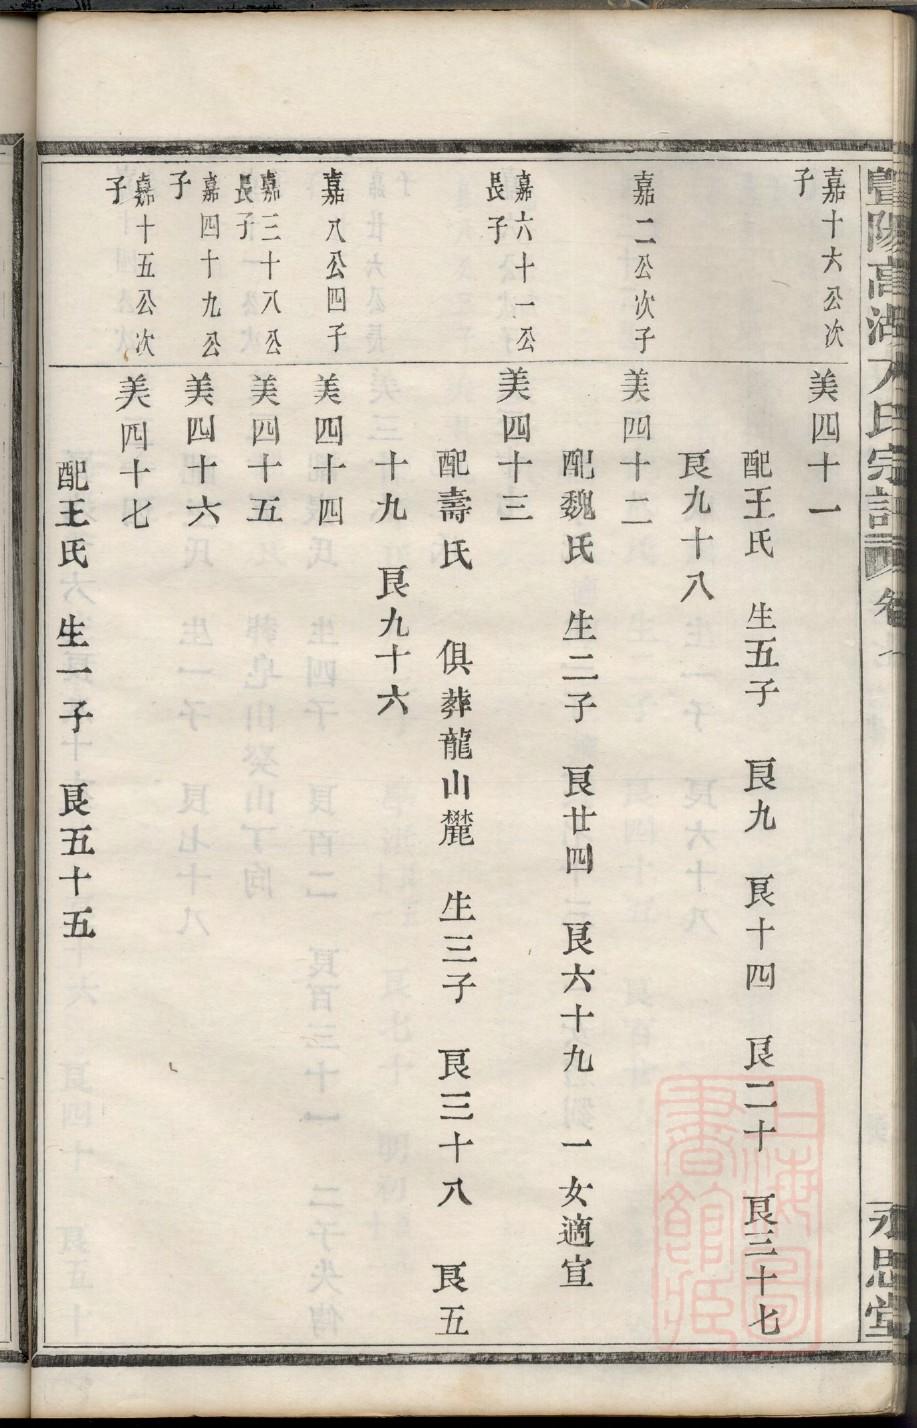 暨陽高湖方氏宗譜 卷 永思堂
嘉十六公次子
美四十一
配王氏 生五子 良九 良十四 良二十 良三十七
良九十八
嘉二公次子
美四十二
配魏氏 生二子 良廿四 良六十九 一女適宣
嘉六十一公長子
美四十三
配壽氏 俱葬龍山麓 生三子 良三十八 良五
十九 良九十六
嘉八公四子
美四十四
嘉三十八公長子
美四十五
嘉四十九公子
美四十六
嘉十五公次子
美四十七
配王氏 生一子 良五十五